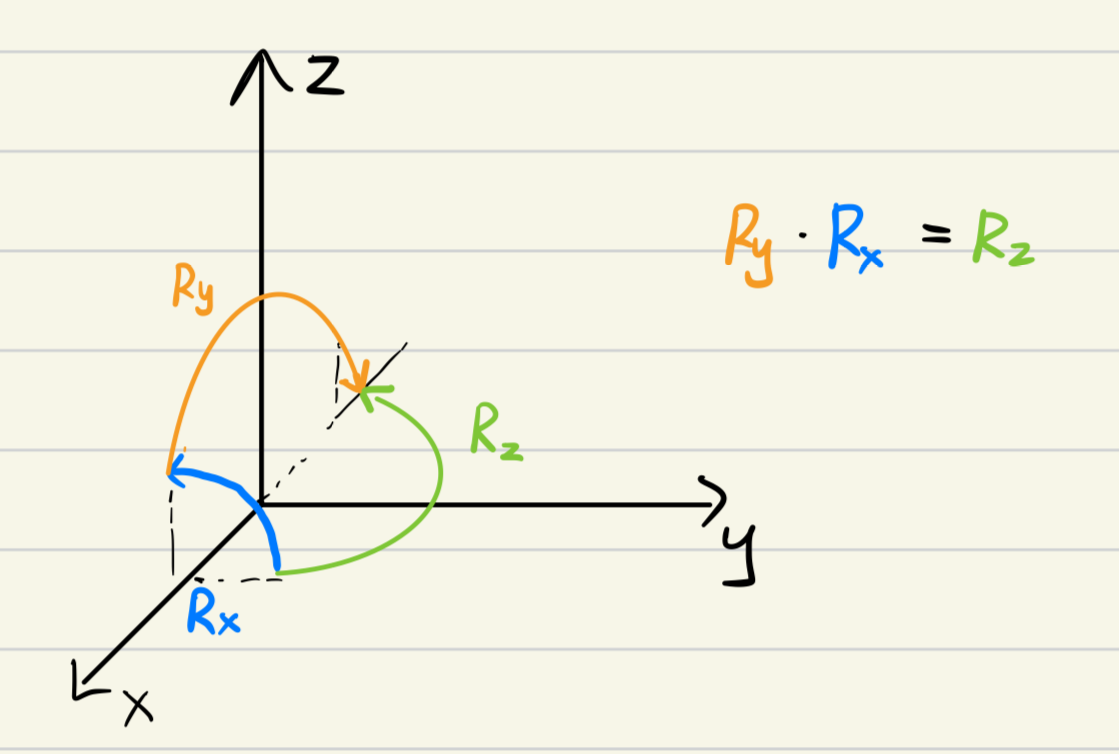 z
Ry · Rx = Rz
Ry
Rz
y
Rx
x